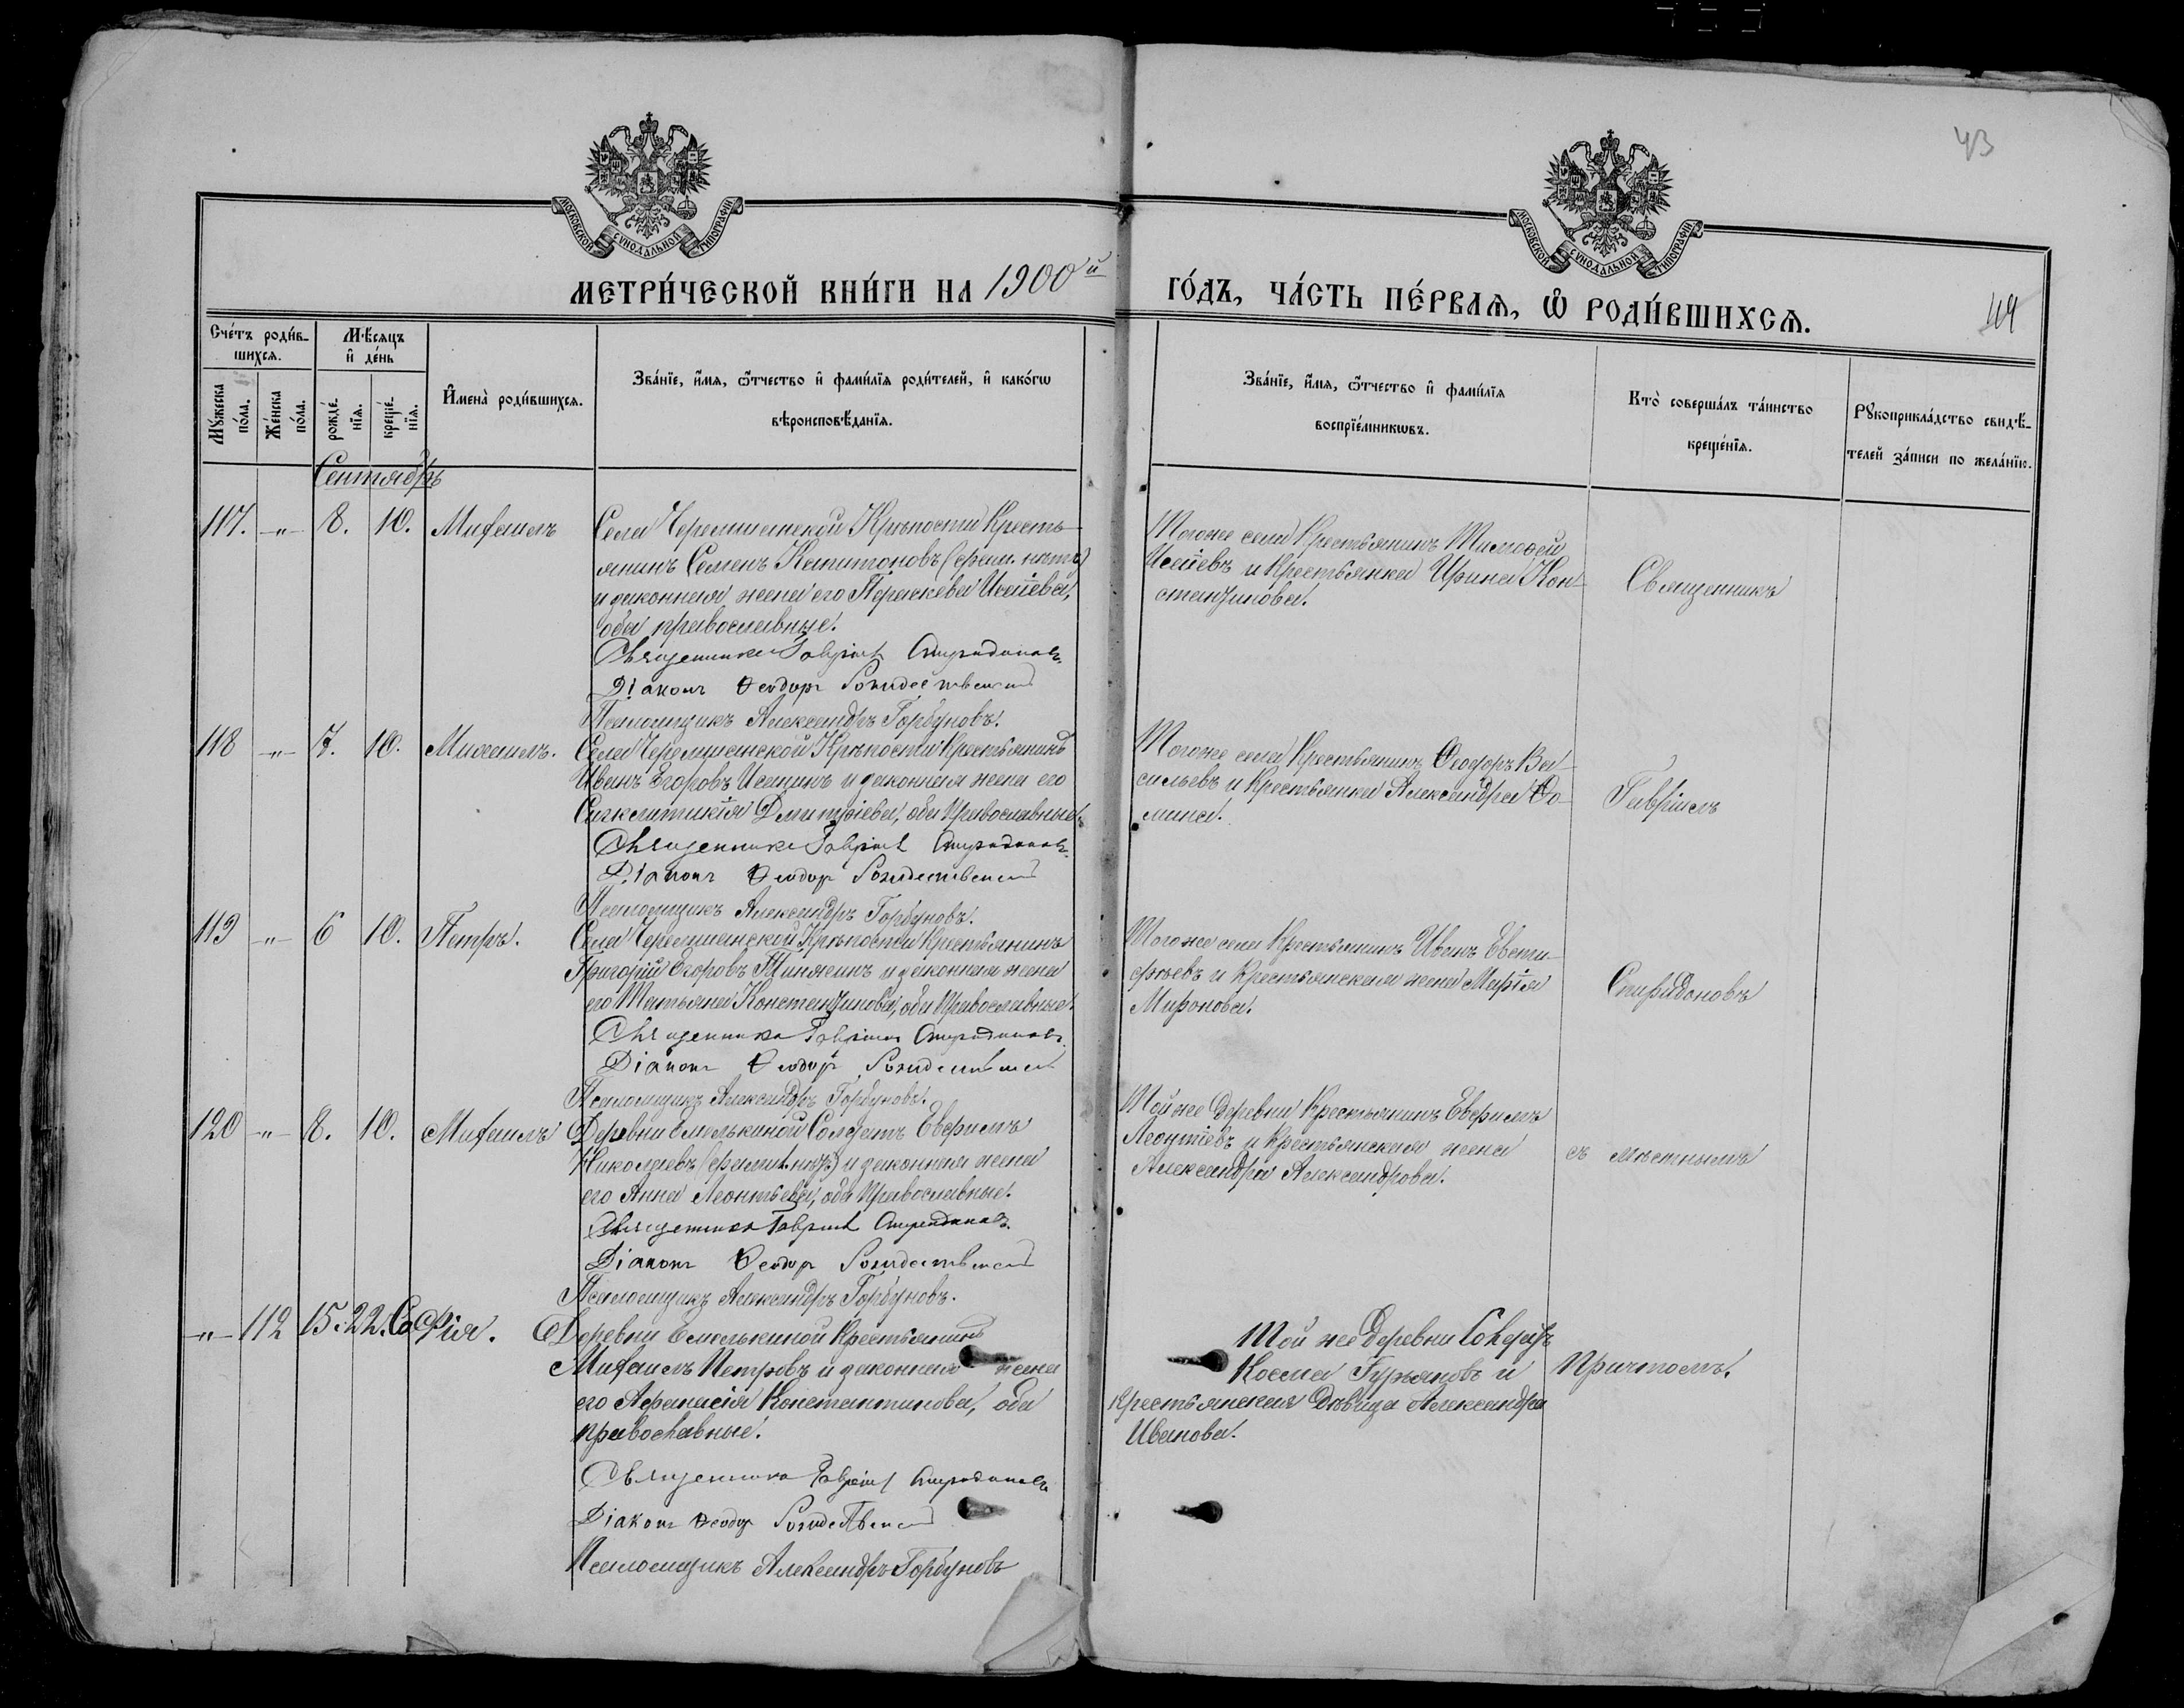 43
МОСКОВСКОЙ СѴНОДАЛЬНОЙ ТИПОГРАФІИ
МОСКОВСКОЙ СѴНОДАЛЬНОЙ ТИПОГРАФІИ
МЕТРИ́ЧЕСКОЙ КНИ́ГИ НА 1900й
ГО́ДЪ, ЧА́СТЬ ПЕ́РВАѦ, Ѡ РОДИ́ВШИХСѦ.
Сче́тъ роди́в-
шихсѧ.
Мꙋ́жеска по́ла.
Же́нска по́ла.
Мѣ́сѧцъ
и҆ де́нь
рожде́-
нїѧ.
креще́-
нїѧ.
И҆мена̀ роди́вшихсѧ.
Зва́нїе, и҆́мѧ, ѻ҆́тчество и҆ фами́лїѧ роди́телей, и҆ како́гѡ
вѣроисповѣ́данїѧ.
Зва́нїе, и҆́мѧ, ѻ҆́тчество и҆ фами́лїѧ
воспрїе́мникѡвъ.
Кто̀ соверша́лъ та́инство
креще́нїѧ.
Рꙋкоприкла́дство свидѣ́-
телей за́писи по жела́нїю.
Сентябрь
117. -"- 8. 10. Михаилъ
Села Черемшанской Крѣпости Кресть-
янинъ Семенъ Капитоновъ (фам. нѣтъ)
и законная жена его Параскева Исаіева,
оба православные.
Священникъ Гавріилъ Спиридоновъ.
Діаконъ Ѳеодоръ Рождественскій
Псаломщикъ Александръ Горбуновъ.
Того же села Крестьянинъ Тимоѳей
Исаіевъ и Крестьянка Ирина Кон-
стантинова.
Священникъ
118 -"- 7. 10. Михаилъ.
Села Черемшанской Крѣпости Крестьянинъ
Иванъ Егоровъ Исанинъ и законная жена его
Синклитикія Дмитріева, оба Православные.
Священникъ Гавріилъ Спиридоновъ.
Діаконъ Ѳеодоръ Рождественскій
Псаломщикъ Александръ Горбуновъ.
Того же села Крестьянинъ Ѳеодоръ Ва-
сильевъ и Крестьянка Александра Ѳо-
мина.
Гавріилъ
119 -"- 6 10. Петръ.
Села Черемшанской Крѣпости Крестьянинъ
Григорій Егоровъ и законная жена
его Татьяна Константинова, оба Православные.
Священникъ Гавріилъ Спиридоновъ.
Діаконъ Ѳеодоръ Рождественскій
Псаломщикъ Александръ Горбуновъ.
Того же села Крестьянинъ Иванъ Евсти-
фѣевъ и Крестьянская жена Марія
Миронова.
Спиридоновъ
120 -"- 8. 10. Михаилъ
Деревни Емелькиной Солдатъ Евфимъ
Николаевъ (фамил. нѣтъ) и законная жена
его Анна Леонтьева, оба Православные.
Священникъ Гавріилъ Спиридоновъ.
Діаконъ Ѳеодоръ Рождественскій
Псаломщикъ Александръ Горбуновъ.
Той же деревни Крестьянинъ Евфимъ
Леонтіевъ и Крестьянская жена
Александра Александрова.
съ мѣстнымъ
-"- 112 15. 22. Софія.
Деревни Емелькиной Крестьянинъ
Михаилъ Петровъ и законная жена
его Афанасія Константинова, оба
православные.
Священникъ Гавріилъ Спиридоновъ
Діаконъ Ѳеодоръ Рождественскій
Псаломщикъ Александръ Горбуновъ
Той же деревни Солдатъ
Косма Гурьяновъ и
Крестьянская дѣвица Александра
Иванова.
Причтомъ.